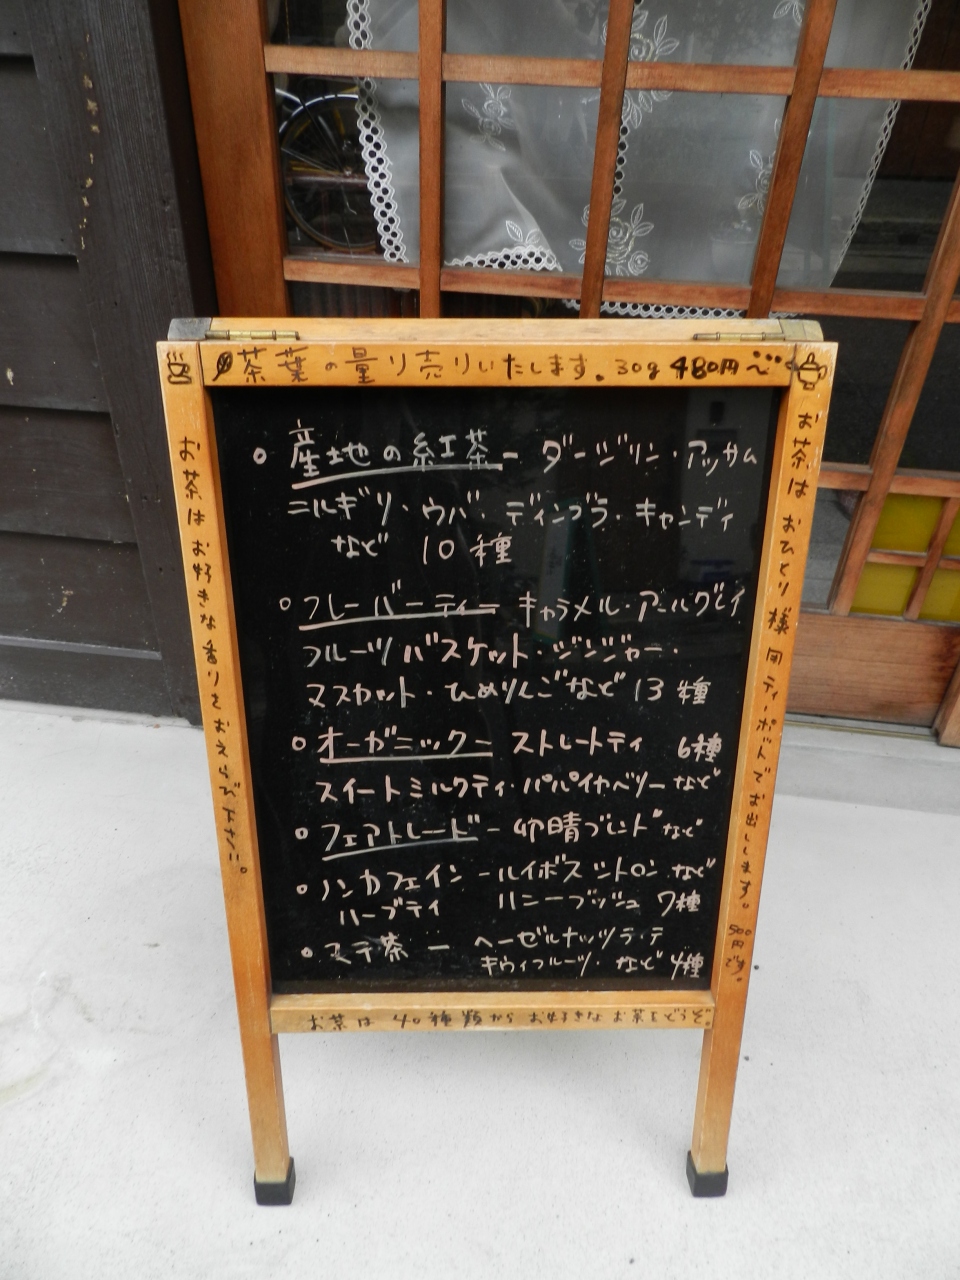 茶葉の量り売りいたします。30g 480円〜
お茶はお好きな香りをおえらび下さい。
○ 産地の紅茶ー ダージリン・アッサム
ニルギリ・ウバ・ディンブラ・キャンディ
など 10種
○ フレーバーティー キャラメル・アールグレイ
フルーツバスケット・ジンジャー・
マスカット・ひめりんごなど 13種
○ オーガニックー ストレートティ 6種
スイートミルクティ・パパイヤベリーなど
○ フェアトレードー 卯晴ブレンドなど
○ ノンカフェインールイボス シトロン など
ハーブティ ハニーブッシュ 7種
○ マテ茶 ー ヘーゼルナッツラ・テ
キウィフルーツ・など 4種
お茶はおひとり様用ティーポットでお出しします。
500円です。
お茶は 40種類から お好きな お茶をどうぞ。